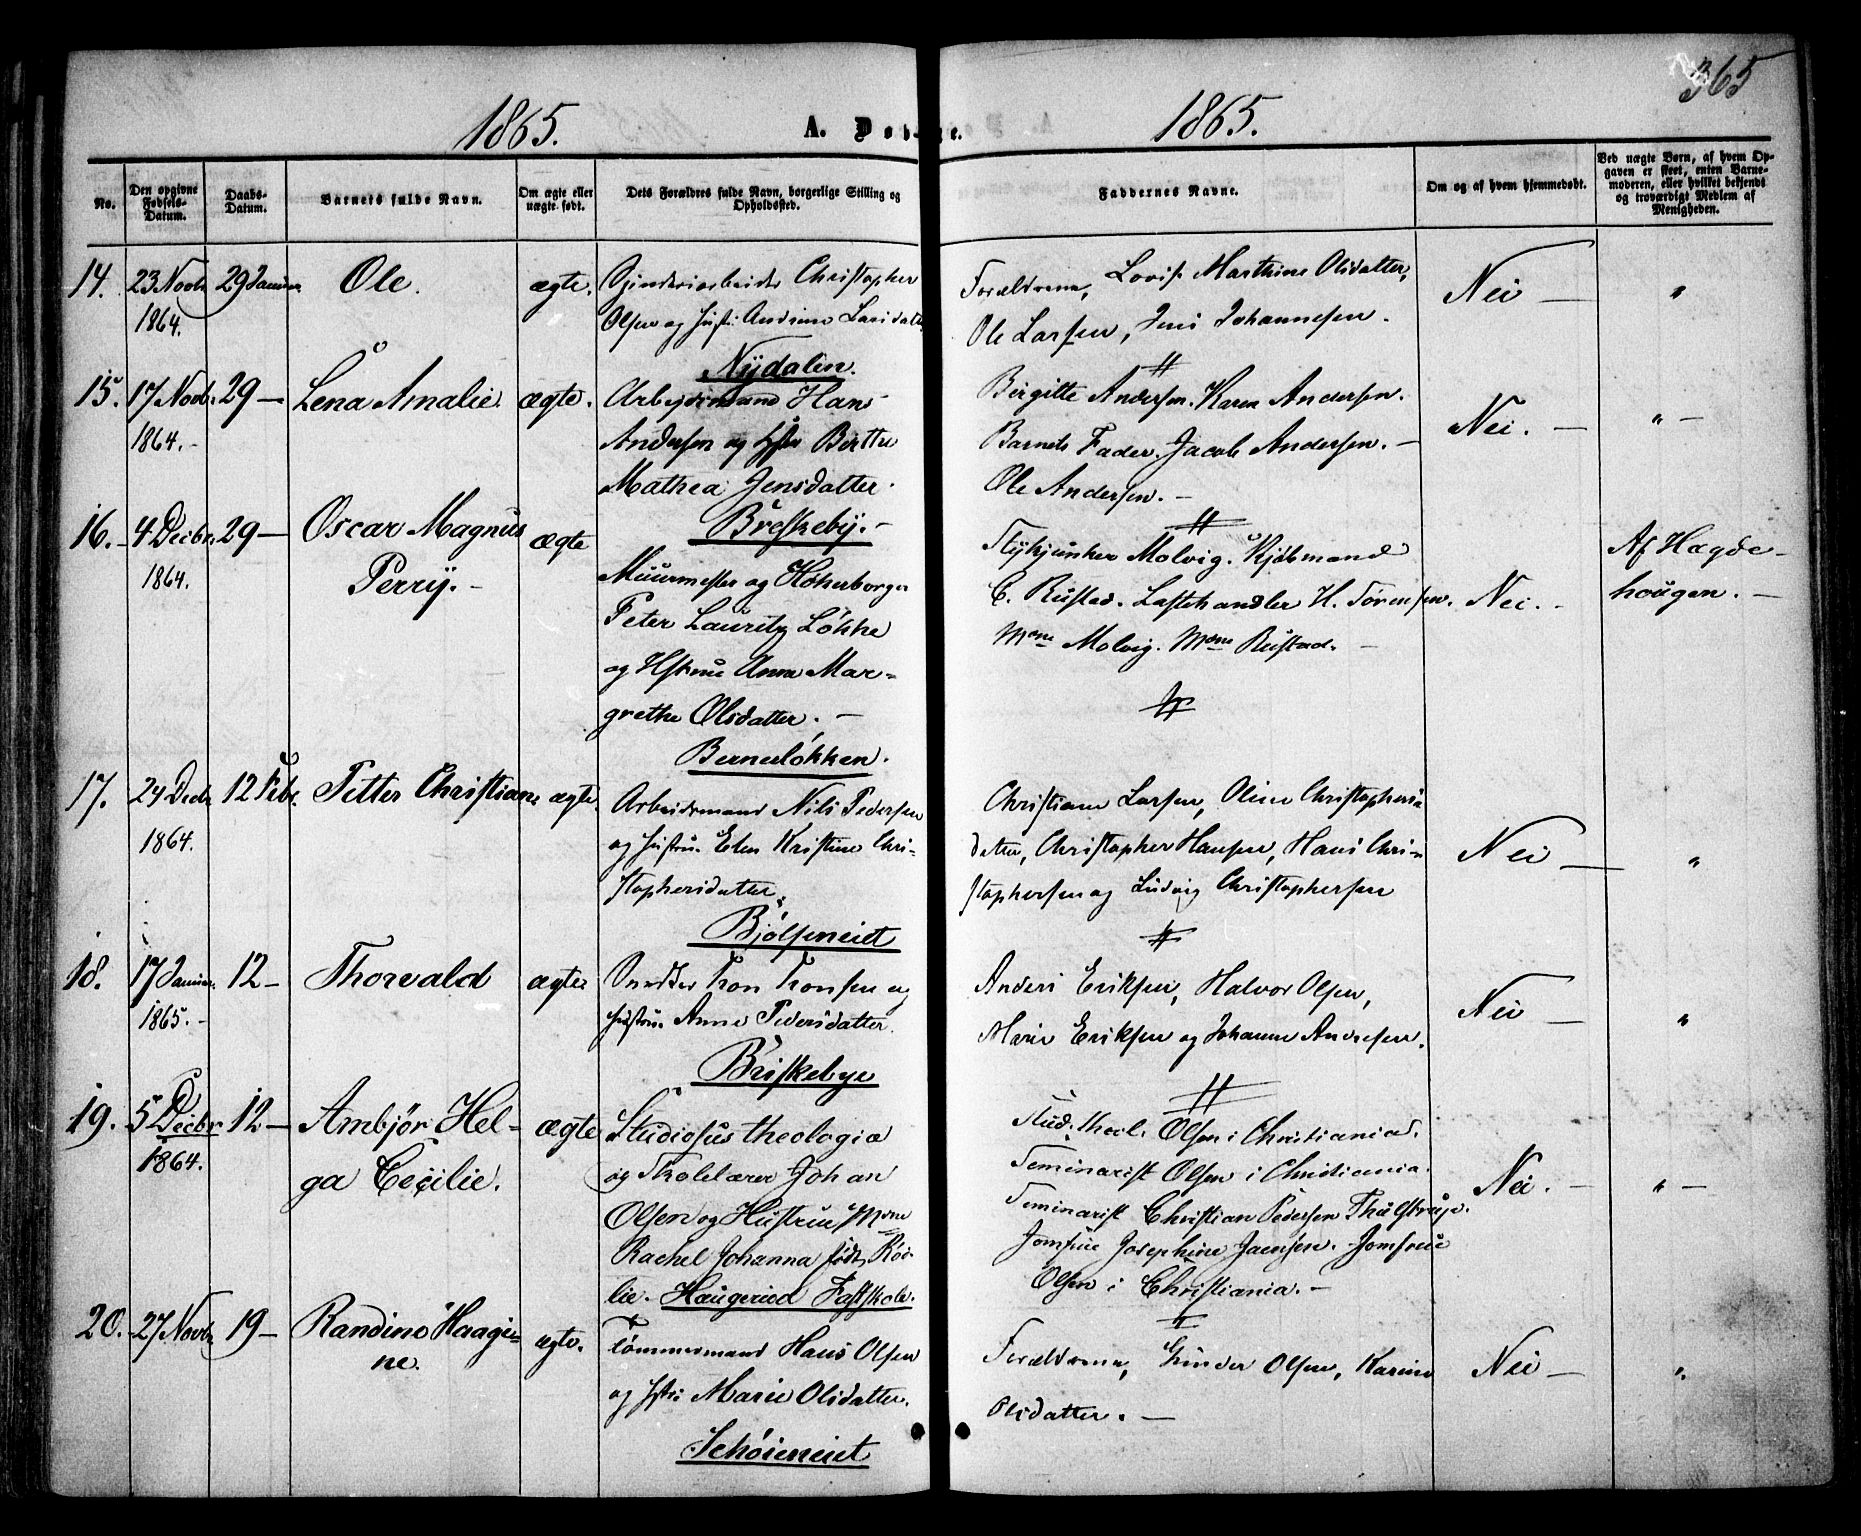 365
1865.
A. Døb
te.
1865.
No.
Den opgivne Fødsels-Datum.
Daabs-Datum.
Barnets fulde Navn.
Om ægte eller uægte født.
Dets Forældres fulde Navn, borgerlige Stilling og Opholdssted.
Faddernes Navne.
Om og af hvem hjemmedøbt.
Ved uægte Børn, af hvem Opgaven er skeet, enten Barnemoderen, eller hvilket bekjendt og troværdigt Medlem af Menigheden.
14.
23 Novbr
1864.
29 Januar
Ole.
ægte.
Spinderiarbeider Christopher
Olsen og Hustr: Andrine Larsdatter
Nydalen.
Forældrene, Lovise Marthine Olsdatter,
Ole Larsen, Jens Johannesen.
Nei —
"
15.
17 Novbr.
1864. -
29 —
Lena Amalie.
ægte.
Arbeidsmand Hans
Andersen og Hstr Birthe
Mathea Jensdatter.
Breskeby. -
Birgitte Andersen. Karen Andersen.
Barnets Fader. Jacob Andersen. —
Ole Andersen. —
Nei. —
" —
16. -
4 Decbr.
1864.
29 —
Oscar Magnus
Perry. -
ægte
Muurmester og Hoherborger
Peter Lauritz Løkke
og Hstrue Anna Mar=
grethe Olsdatter. —
Berneløkken.
Stykjunker Molvig. Kjøbmand
C. Rustad. Lastehandler H. Sørensen.
Mme Molvig. Mme Rustad. —
Nei. —
Af Hægde-
hougen. —
17.
24 Decbr
1864.
12 Febr.
Petter Christian.
ægte.
Arbeidsmand Nils Pedersen
og Hustru Elen Kristine Chri-
stophersdatter.
Bjølseneiet
Christiane Larsen, Oline Christophers-
datter, Christopher Hansen, Hans Chri-
stophersen og Ludvig Christophersen
Nei —
"
18.
17 Januar
1865. -
12 -
Thorvald
ægte
Snedker Tron Tronsen og
Hustru. Anne Pedersdatter.
Briskebye
Anders Eriksen, Halvor Olsen,
Marie Eriksen og Johanne Andresen.
Nei —
"
19.
5 Decbr
1864.
12 —
Ambjør Hel-
ga Cecilie.
ægte
Studiosus theologiæ
og Skolelærer Johan
Olsen og Hustrue Mme
Rachel Johanna født Rós-
lie. Haugerud Fastskole.
Stud. theol. Olsen i Christiania.
Seminarist Olsen i Christiania.
Seminarist Christian Pedersen Thulstrup.
Jomfrue Josephine Jansen. Jomfrue
Olsen i Christiania. -
Nei. —
" —
20.
27 Novbr
19 —
Randine Haagi-
ne.
ægte.
Tømmermand Hans Olsen
og Hstr: Marie Olsdatter.
Schøieneiet
Forældrene, Gunder Olsen, Karine
Olsdatter. —
Nei —
"